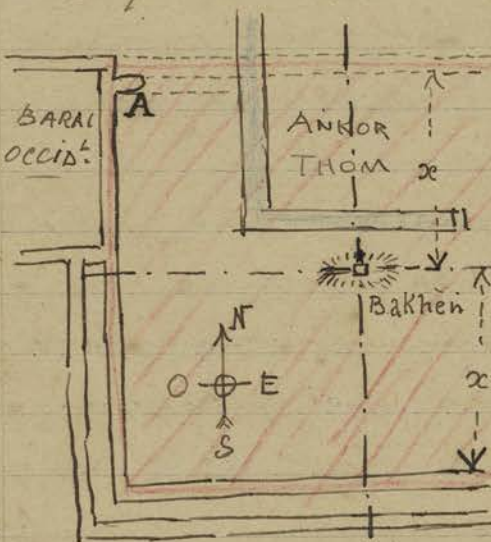 A
BARAI
OCCIDᵗ.
ANKOR
THOM
x
Bakhen
N
O
E
S
x